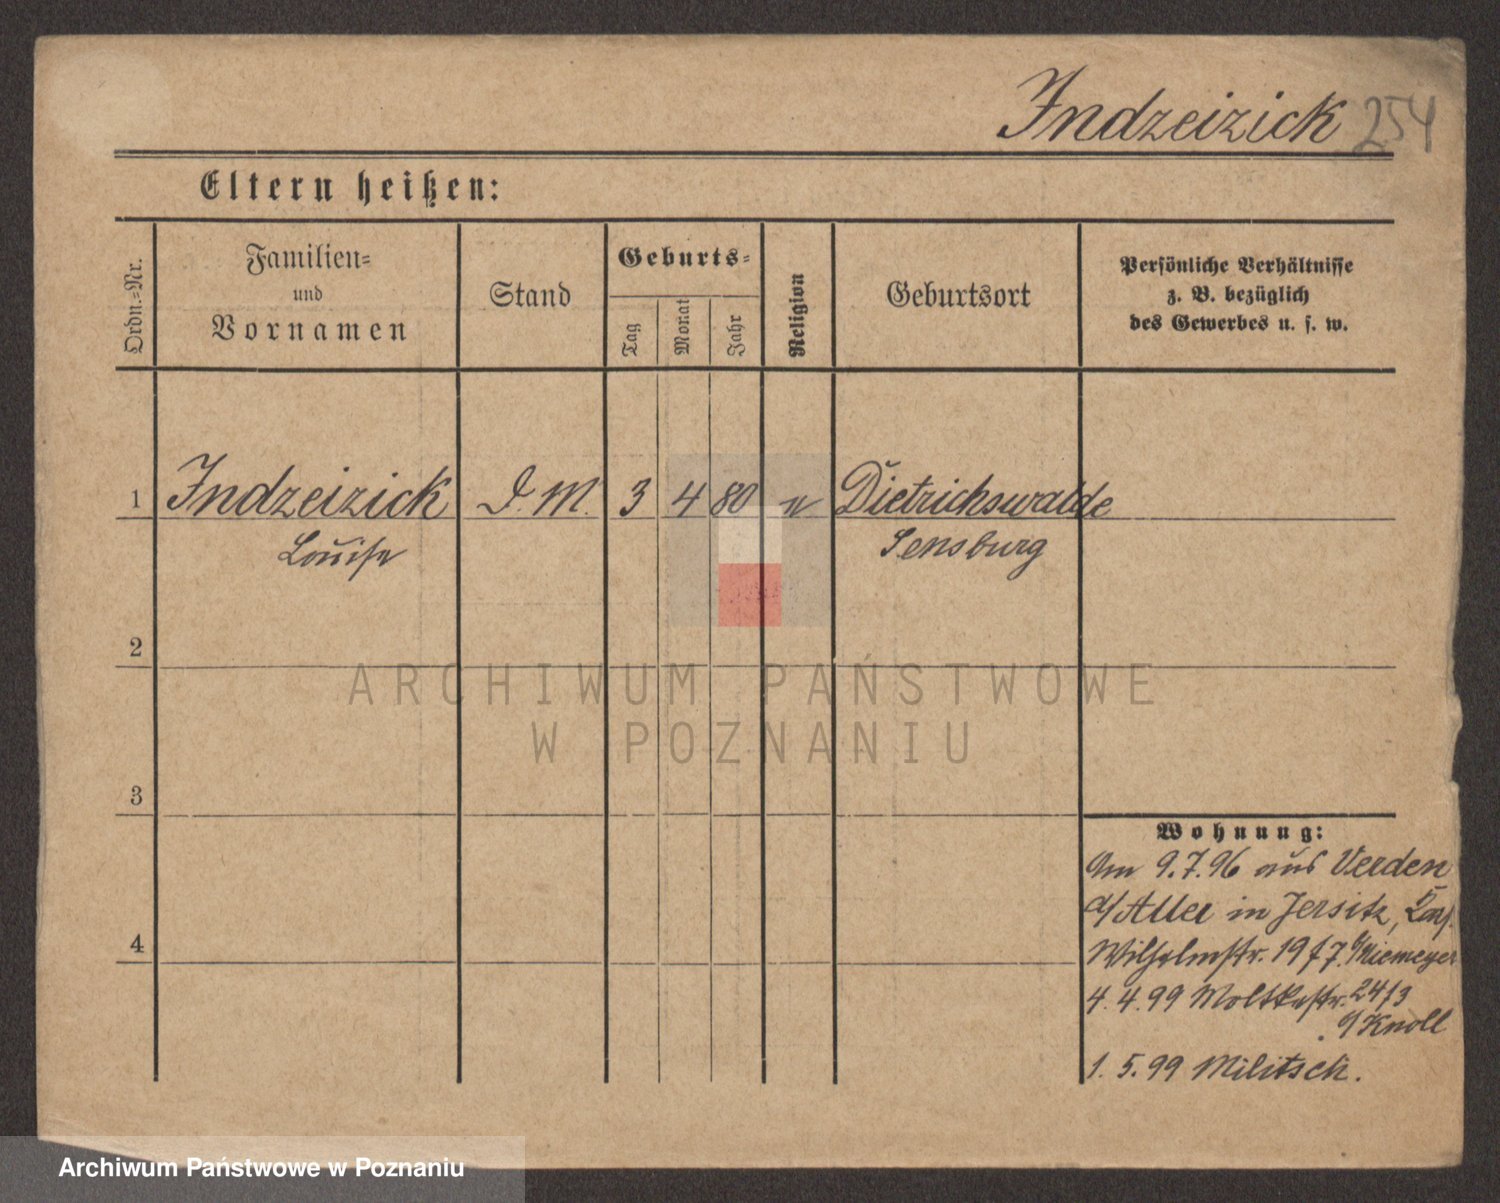 Indzeizick 254
Eltern heißen:
Ordn.=Nr.
Familien=
und
Vornamen
Stand
Geburts=
Tag
Monat
Jahr
Religion
Geburtsort
Persönliche Verhältnisse
z. B. bezüglich
des Gewerbes u. s. w.
1 Indzeizick D. M. 3 4 80 Dietrichswalde
Louise Sensburg
2
3
4
Wohnung:
Am 9.7.96 aus Verden
a/Aller in Jersitz,
Wilhelmstr. 19 b/Niemeyer
4.4.99 Moltkestr. 24/3
b/Knoll
1.5.99 Militsch.
ARCHIWUM PAŃSTWOWE
W POZNANIU
Archiwum Państwowe w Poznaniu